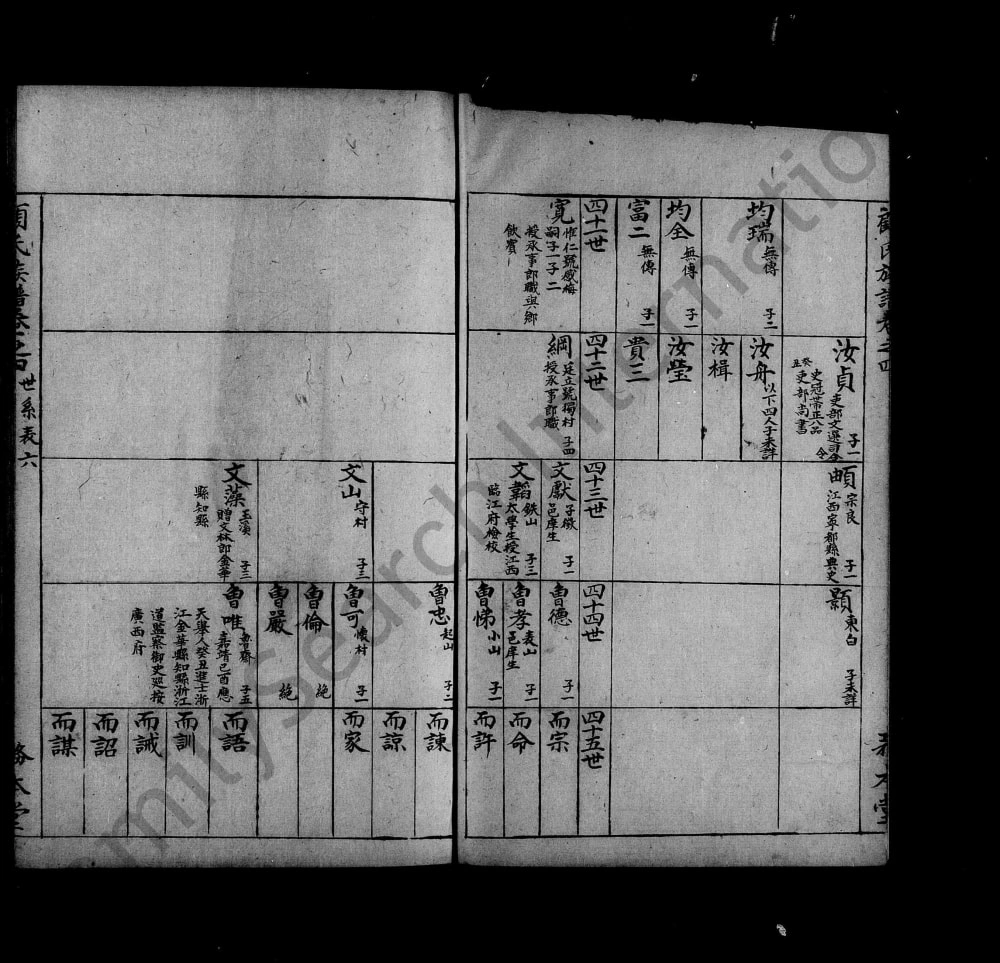 均瑞 無傳 子二
均全 無傳 子一
富二 無傳 子一
四十一世
寬 惟仁號感梅
嗣子一子二
授承事郎職與鄉
飲賓
汝貞 吏部文選司令
史冠帶正八品
癸丑吏部尚書 令
子一
汝舟 以下四人子未詳
汝楫
汝瑩
貴三
四十二世
綱 廷立號獨村 子四
授承事郎職
𩒎 宗良
江西寧都縣典史
子一
四十三世
文獻 子徵
邑庠生 子一
文韜 鉄山 子三
太學生授江西
臨江府檢校
顥 東白
子未詳
四十四世
魯德 子一
魯孝 袁山
邑庠生 子一
魯悌 小山 子一
四十五世
而宗
而命
而許
務本堂
文山 守村 子三
文藻 玉溪 子三
贈文林郎金華
縣知縣
魯忠 起山 子二
魯可 懷村 子一
魯倫 絶
魯嚴 絶
魯唯 魯齋 子五
嘉靖己酉應
天舉人癸丑進士浙
江金華縣知縣浙江
道監察御史巡按
廣西府
而諫
而諒
而家
而語
而訓
而誠
而詔
而謀
世系表六
務本堂
Family Search International